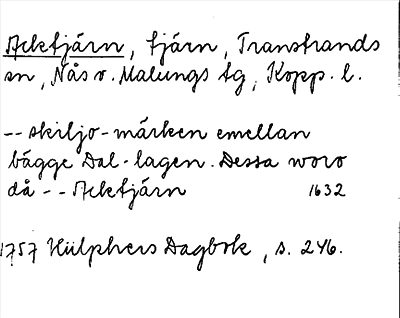 Acktjärn, tjärn, Transtrands
sn, Nås o. Malungs tg, Kopp. l.
-- skiljo-märken emellan
bägge Dal-lagen. Dessa woro
då -- Acktjärn 1632
1757 Hülphers Dagbok, s. 246.